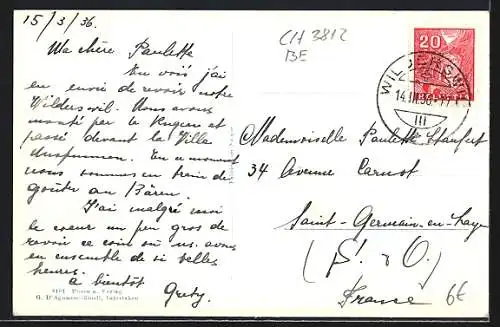 15/3/36.
Ma chère Paulette
Tu vois j'ai
eu envie de revoir notre
Wilderswil. Nous avons
monté par le Rugen et
passé devant la Villa
En ce moment
nous sommes en train de
goûter au Bären.
J'ai malgré moi
le coeur un peu gros de
revoir ce coin où ns. avons
eu ensemble de si belles
heures.
à bientôt
Grety.
CH 3812
BE
20
WILDERSWIL
14.III.36.-17
III
Mademoiselle Paulette
34 Avenue Carnot
Saint-Germain-en-Laye
(S. & O)
France
6€